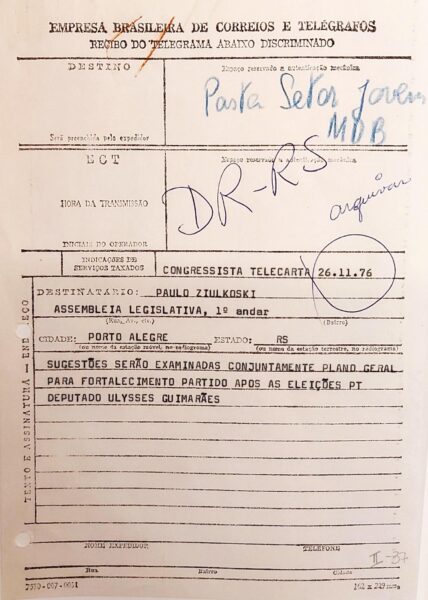 EMPRESA BRASILEIRA DE CORREIOS E TELÉGRAFOS
RECIBO DO TELEGRAMA ABAIXO DISCRIMINADO
DESTINO
Espaço reservado a autenticação mecânica
Pasta Setor Jovem
MDB
Será preenchida pelo expedidor
ECT
Espaço reservado a autenticação mecânica
DR-RS
arquivar
HORA DA TRANSMISSÃO
INICIAIS DO OPERADOR
INDICAÇÕES DE
SERVIÇOS TAXADOS
CONGRESSISTA TELECARTA 26.11.76
DESTINATÁRIO: PAULO ZIULKOSKI
ASSEMBLEIA LEGISLATIVA, 1º andar
(Rua, Av. etc.) (Bairro)
CIDADE: PORTO ALEGRE ESTADO: RS
(ou nome da estação móvel, no radiograma) (ou nome da estação terrestre, no radiograma)
SUGESTÕES SERÃO EXAMINADAS CONJUNTAMENTE PLANO GERAL
PARA FORTALECIMENTO PARTIDO APOS AS ELEIÇÕES PT
DEPUTADO ULYSSES GUIMARÃES
TEXTO E ASSINATURA — ENDEREÇO
NOME EXPEDIDOR TELEFONE
II-37
Rua Bairro Cidade
7530-007-0051